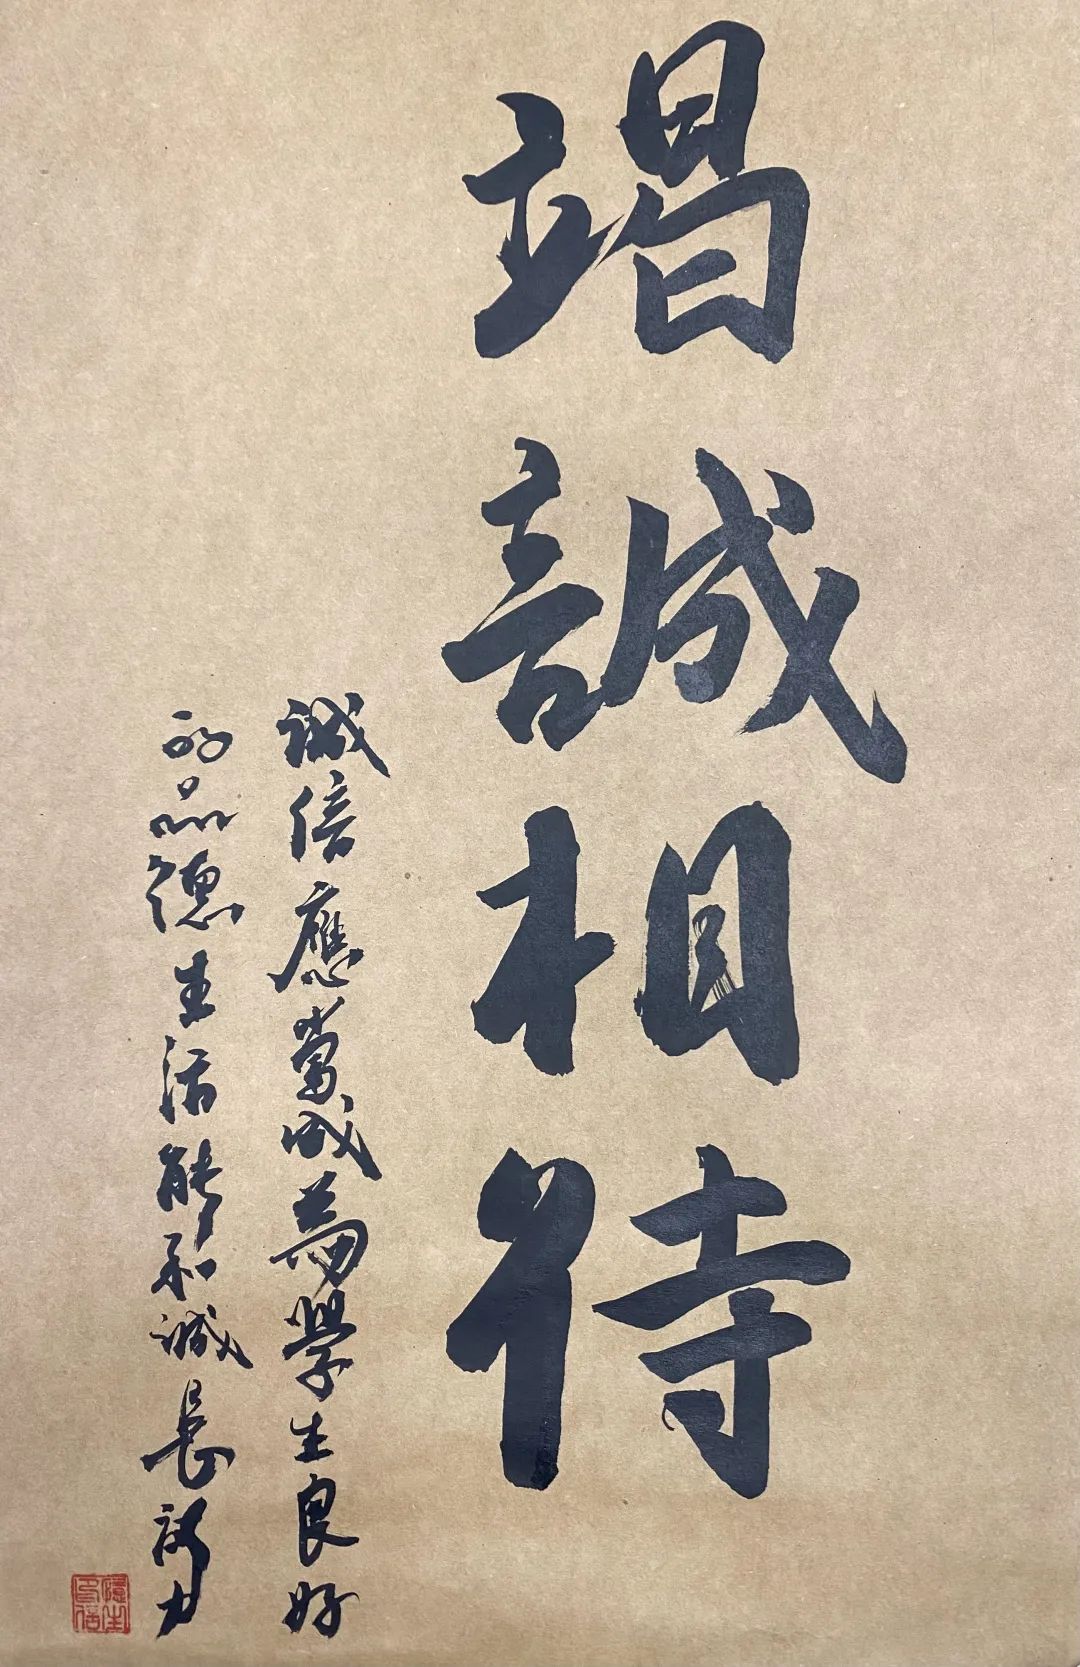 竭誠相待
誠信應當成為學生良好
的品德生活能和誠長